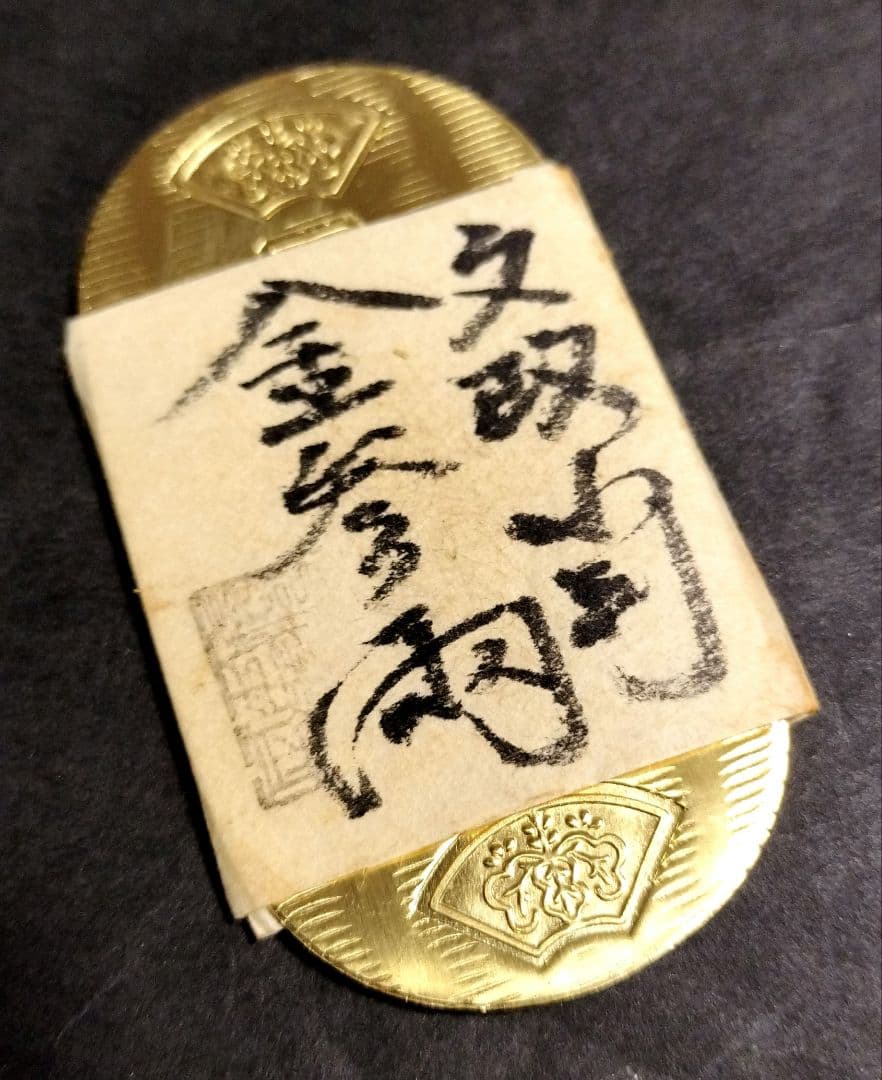 文政小判
金両